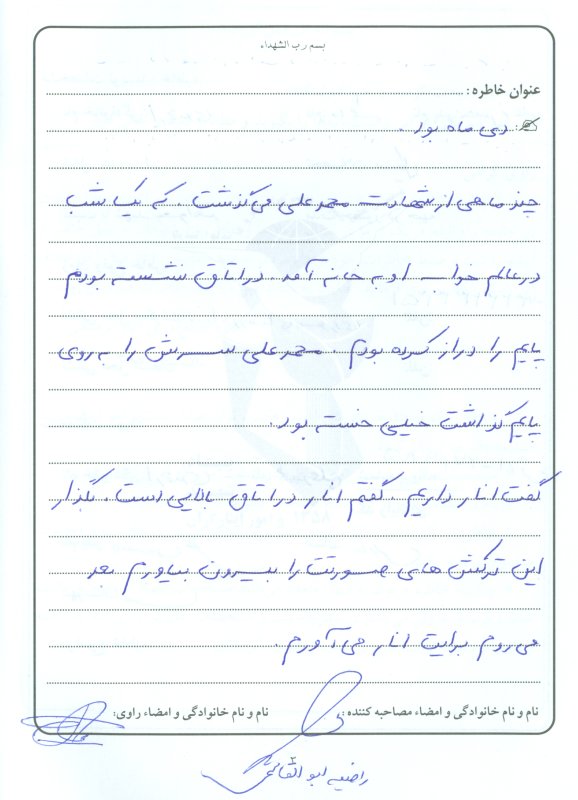 بسم رب الشهداء
عنوان خاطره:
دی ماه بود.
چند ماهی از شهادت محمدعلی می‌گذشت. که یک شب
در عالم خواب او به خانه آمد. در اتاق نشسته بودم
پایم را دراز کرده بودم. محمدعلی سرش را به روی
پایم گذاشت خیلی خسته بود.
گفت انار داریم. گفتم انار در اتاق بالایی است. بگذار
این ترکش های صورتت را بیرون بیاورم بعد
می روم برایت انار می آورم.
نام و نام خانوادگی و امضاء مصاحبه کننده: نام و نام خانوادگی و امضاء راوی:
راضیه ابوالقاسمی